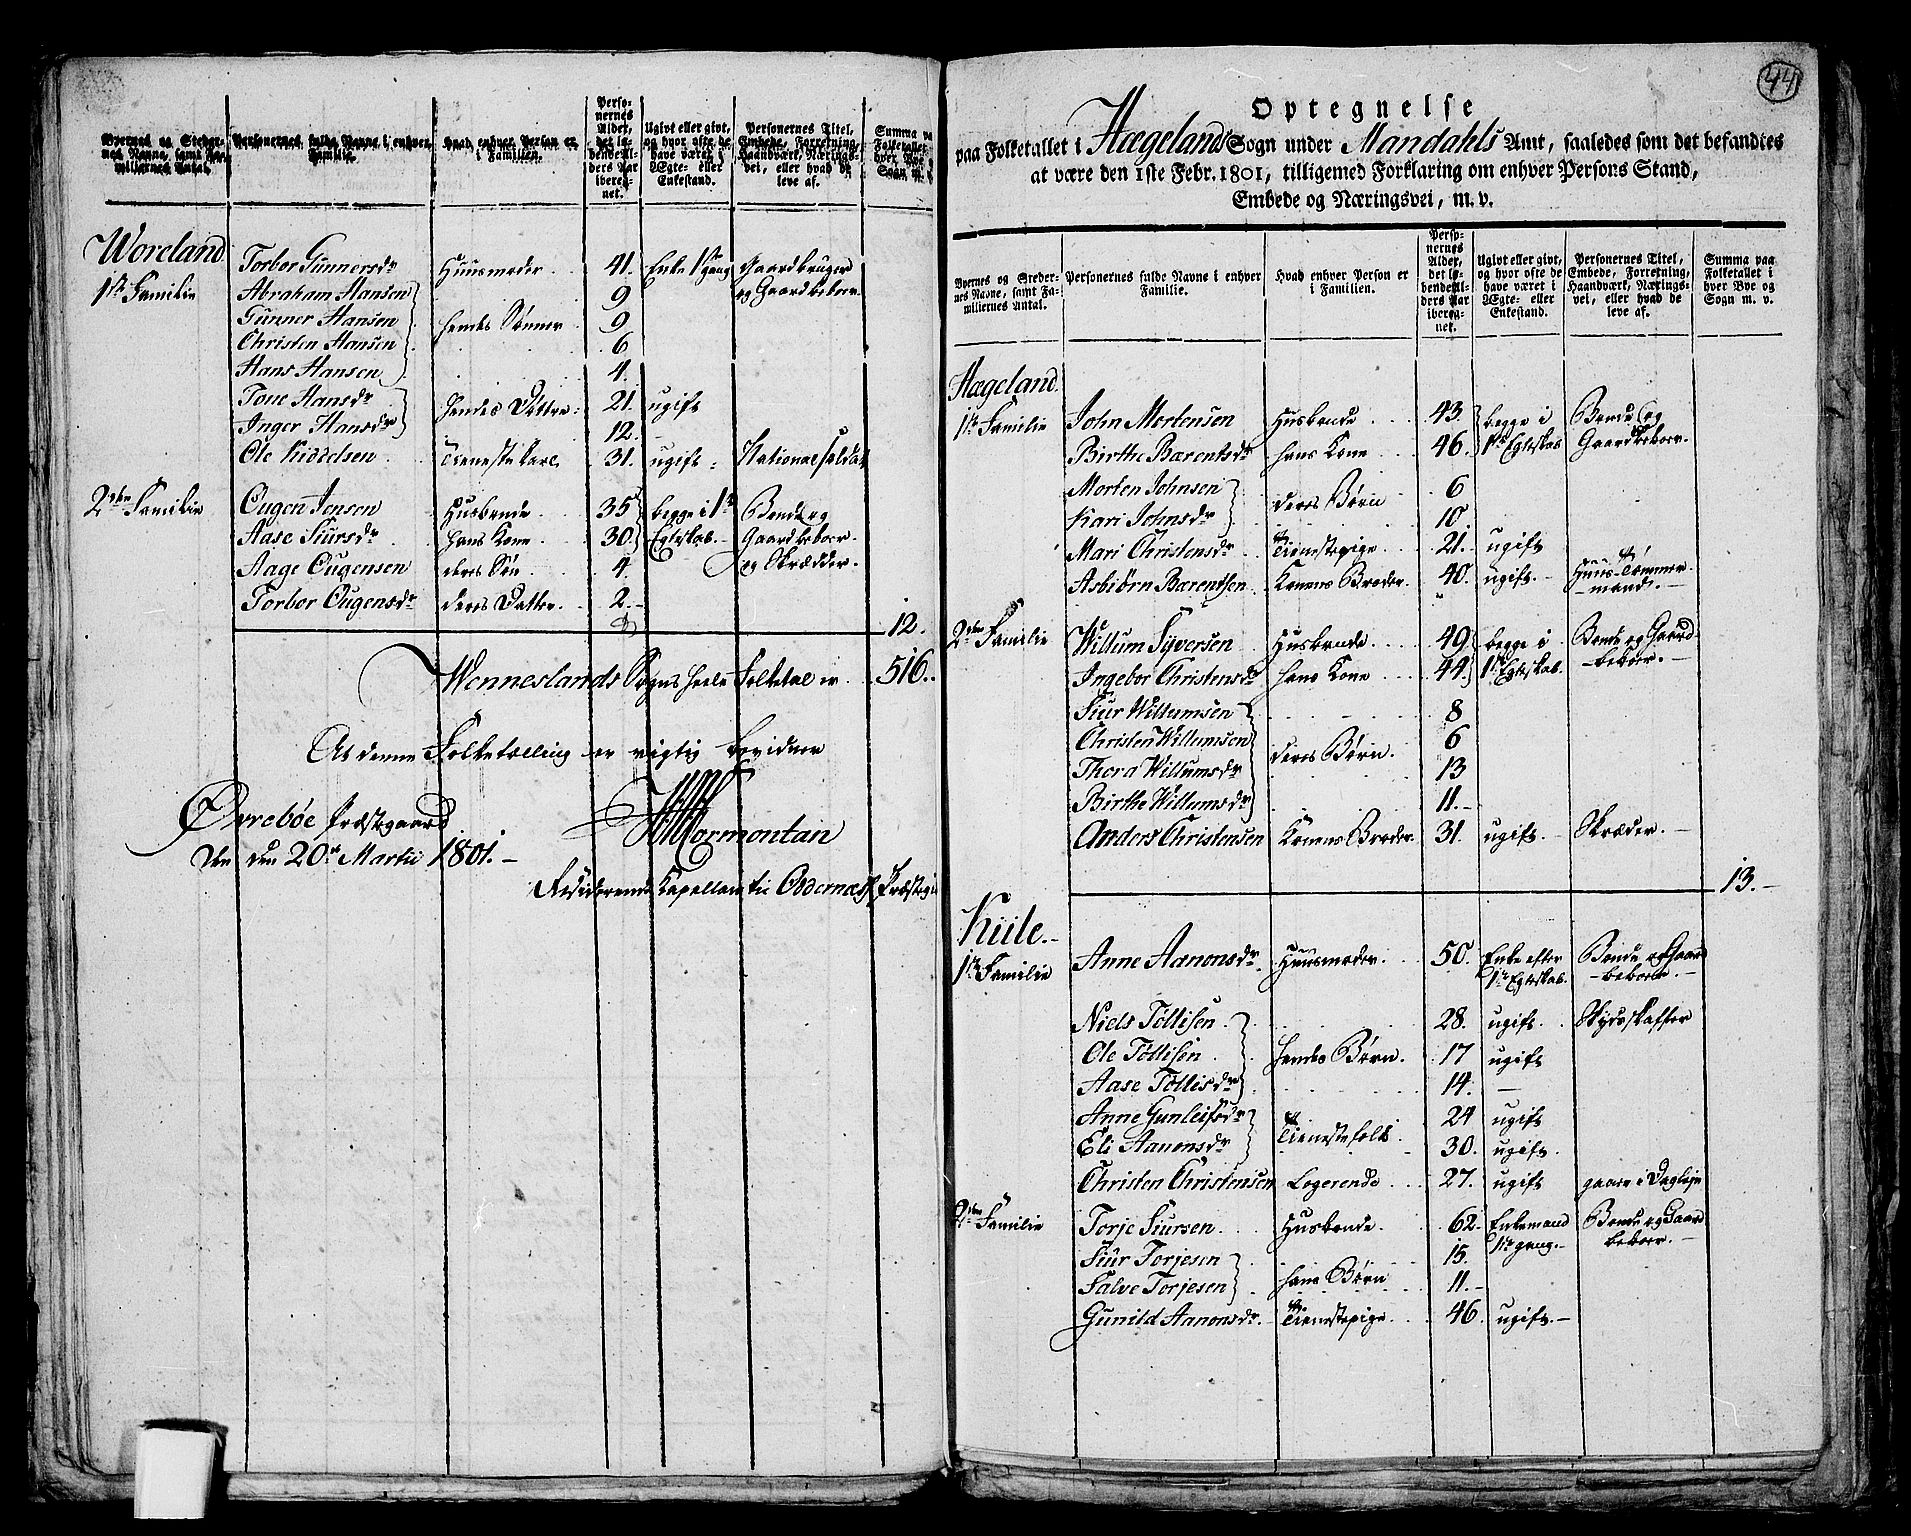 Byernes og Steder-
nes Navne, samt Fa-
miliernes Antal.
Personernes fulde Navne i enhver
Familie.
Hvad enhver Person er
i Familien.
Perso-
nernes
Alder,
det lø-
bende Al-
ders Aar
ibereg-
net.
Ugivt eller givt,
og hvor ofte de
have været i
Ægte- eller
Enkestand.
Personernes Titel,
Embede, Forretning,
Haandværk, Nærings-
vei, eller hvad de
leve af.
Summa paa
Folketallet i
hver Bye og
Sogn m. v.
Woreland
1ste Familie
Torbor Gunnersdr Huusmoder 41. Enke 1 gang Gaardbruger
og Gaardbeboer
Abraham Hansen 9
Gunner Hansen hendes Sønner 9
Christen Hansen 6
Hans Hansen 4.
Tone Hansdr hendes Døttre 21. ugift
Inger Hansdr 12.
Ole Kiødelsen Tienestekarl 31. ugift National Soldat
2den Familie Ougen Jensen Husbonde 35 begge i 1ste Bonde og
Aase Siursdr hans Kone 30. Egteskab. Gaardbeboer
Aage Ougensen deres Søn 4. og Skrædder.
Torbor Ougensdr deres Datter 2.
12.
Wenneslands Sogns heele Folketal er 516.
At denne Folketælling er rigtig bevidner
Øvrebøe Præstegaard
den 20de Martii 1801.
Wormontan
Residerende Kapellan til Oddernæs Præstegi
44
Optegnelse
paa Folketallet i Hægelands Sogn under Mandahls Amt, saaledes som det befandtes
at være den 1ste Febr. 1801, tilligemed Forklaring om enhver Persons Stand,
Embede og Næringsvei, m. v.
Byernes og Steder-
nes Navne, samt Fa-
miliernes Antal.
Personernes fulde Navne i enhver
Familie.
Hvad enhver Person er
i Familien.
Perso-
nernes
Alder,
det lø-
bende Al-
ders Aar
ibereg-
net.
Ugivt eller givt,
og hvor ofte de
have været i
Ægte- eller
Enkestand.
Personernes Titel,
Embede, Forretning,
Haandværk, Nærings-
vei, eller hvad de
leve af.
Summa paa
Folketallet i
hver Bye og
Sogn m. v.
Hægeland.
1ste Familie John Mortensen Husbonde 43 begge i Bonde og
Birthe Barentsdr hans Kone 46. 1ste Egteskab Gaardbeboer
Morten Johnsen deres Børn 6
Kari Johnsdr 10
Mari Christensdr Tienestepige 21. ugift
Asbiørn Barentsen Konens Broder. 40. ugift. Huus-Tømmer-
mand.
2den Familie Willum Syversen Husbonde 49 begge i Bonde og Gaard-
Ingebor Christensdr hans Kone 44. 1ste Egteskab. beboer.
Siur Willumsen 8
Christen Willumsen deres Børn 6
Thora Willumsdr 13
Birthe Willumsdr 11.
Anders Christensen Konens Broder 31. ugift. Skræder.
13.
Kiile.
1ste Familie Anne Aanonsdr Huusmoder. 50. Enke efter Bonde og Gaard
1ste Egteskab. beboer.
Niels Tøllisen 28. ugift. Skydsskaffer
Ole Tøllisen hendes Børn. 17 ugift
Aase Tøllisdr 14.
Anne Gunleifsdr Tienestefolk 24 ugift
Eli Aanonsdr 30. ugift.
Christen Christensen Logerende 27. ugift gaaer i Dagleje
2den Familie Torje Siursen Husbonde 62. Enkemand Bonde og Gaard
1ste gang. beboer.
Siur Torjesen hans Børn 15.
Salve Torjesen 11.
Gunild Aanonsdr. Tienestepige. 46. ugift.